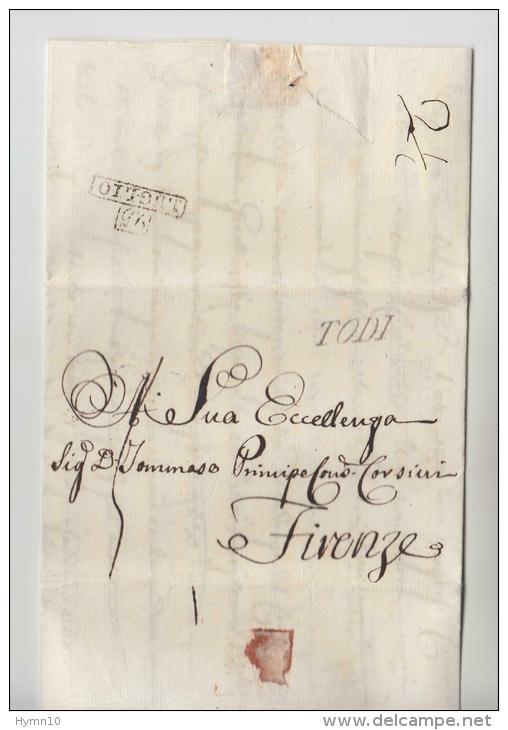 24
LUGLIO
26
TODI
A Sua Eccellenza
Sig.e D. Tommaso Principe Cons.e Corsini
Firenze
Hymn10
www.delcampe.net